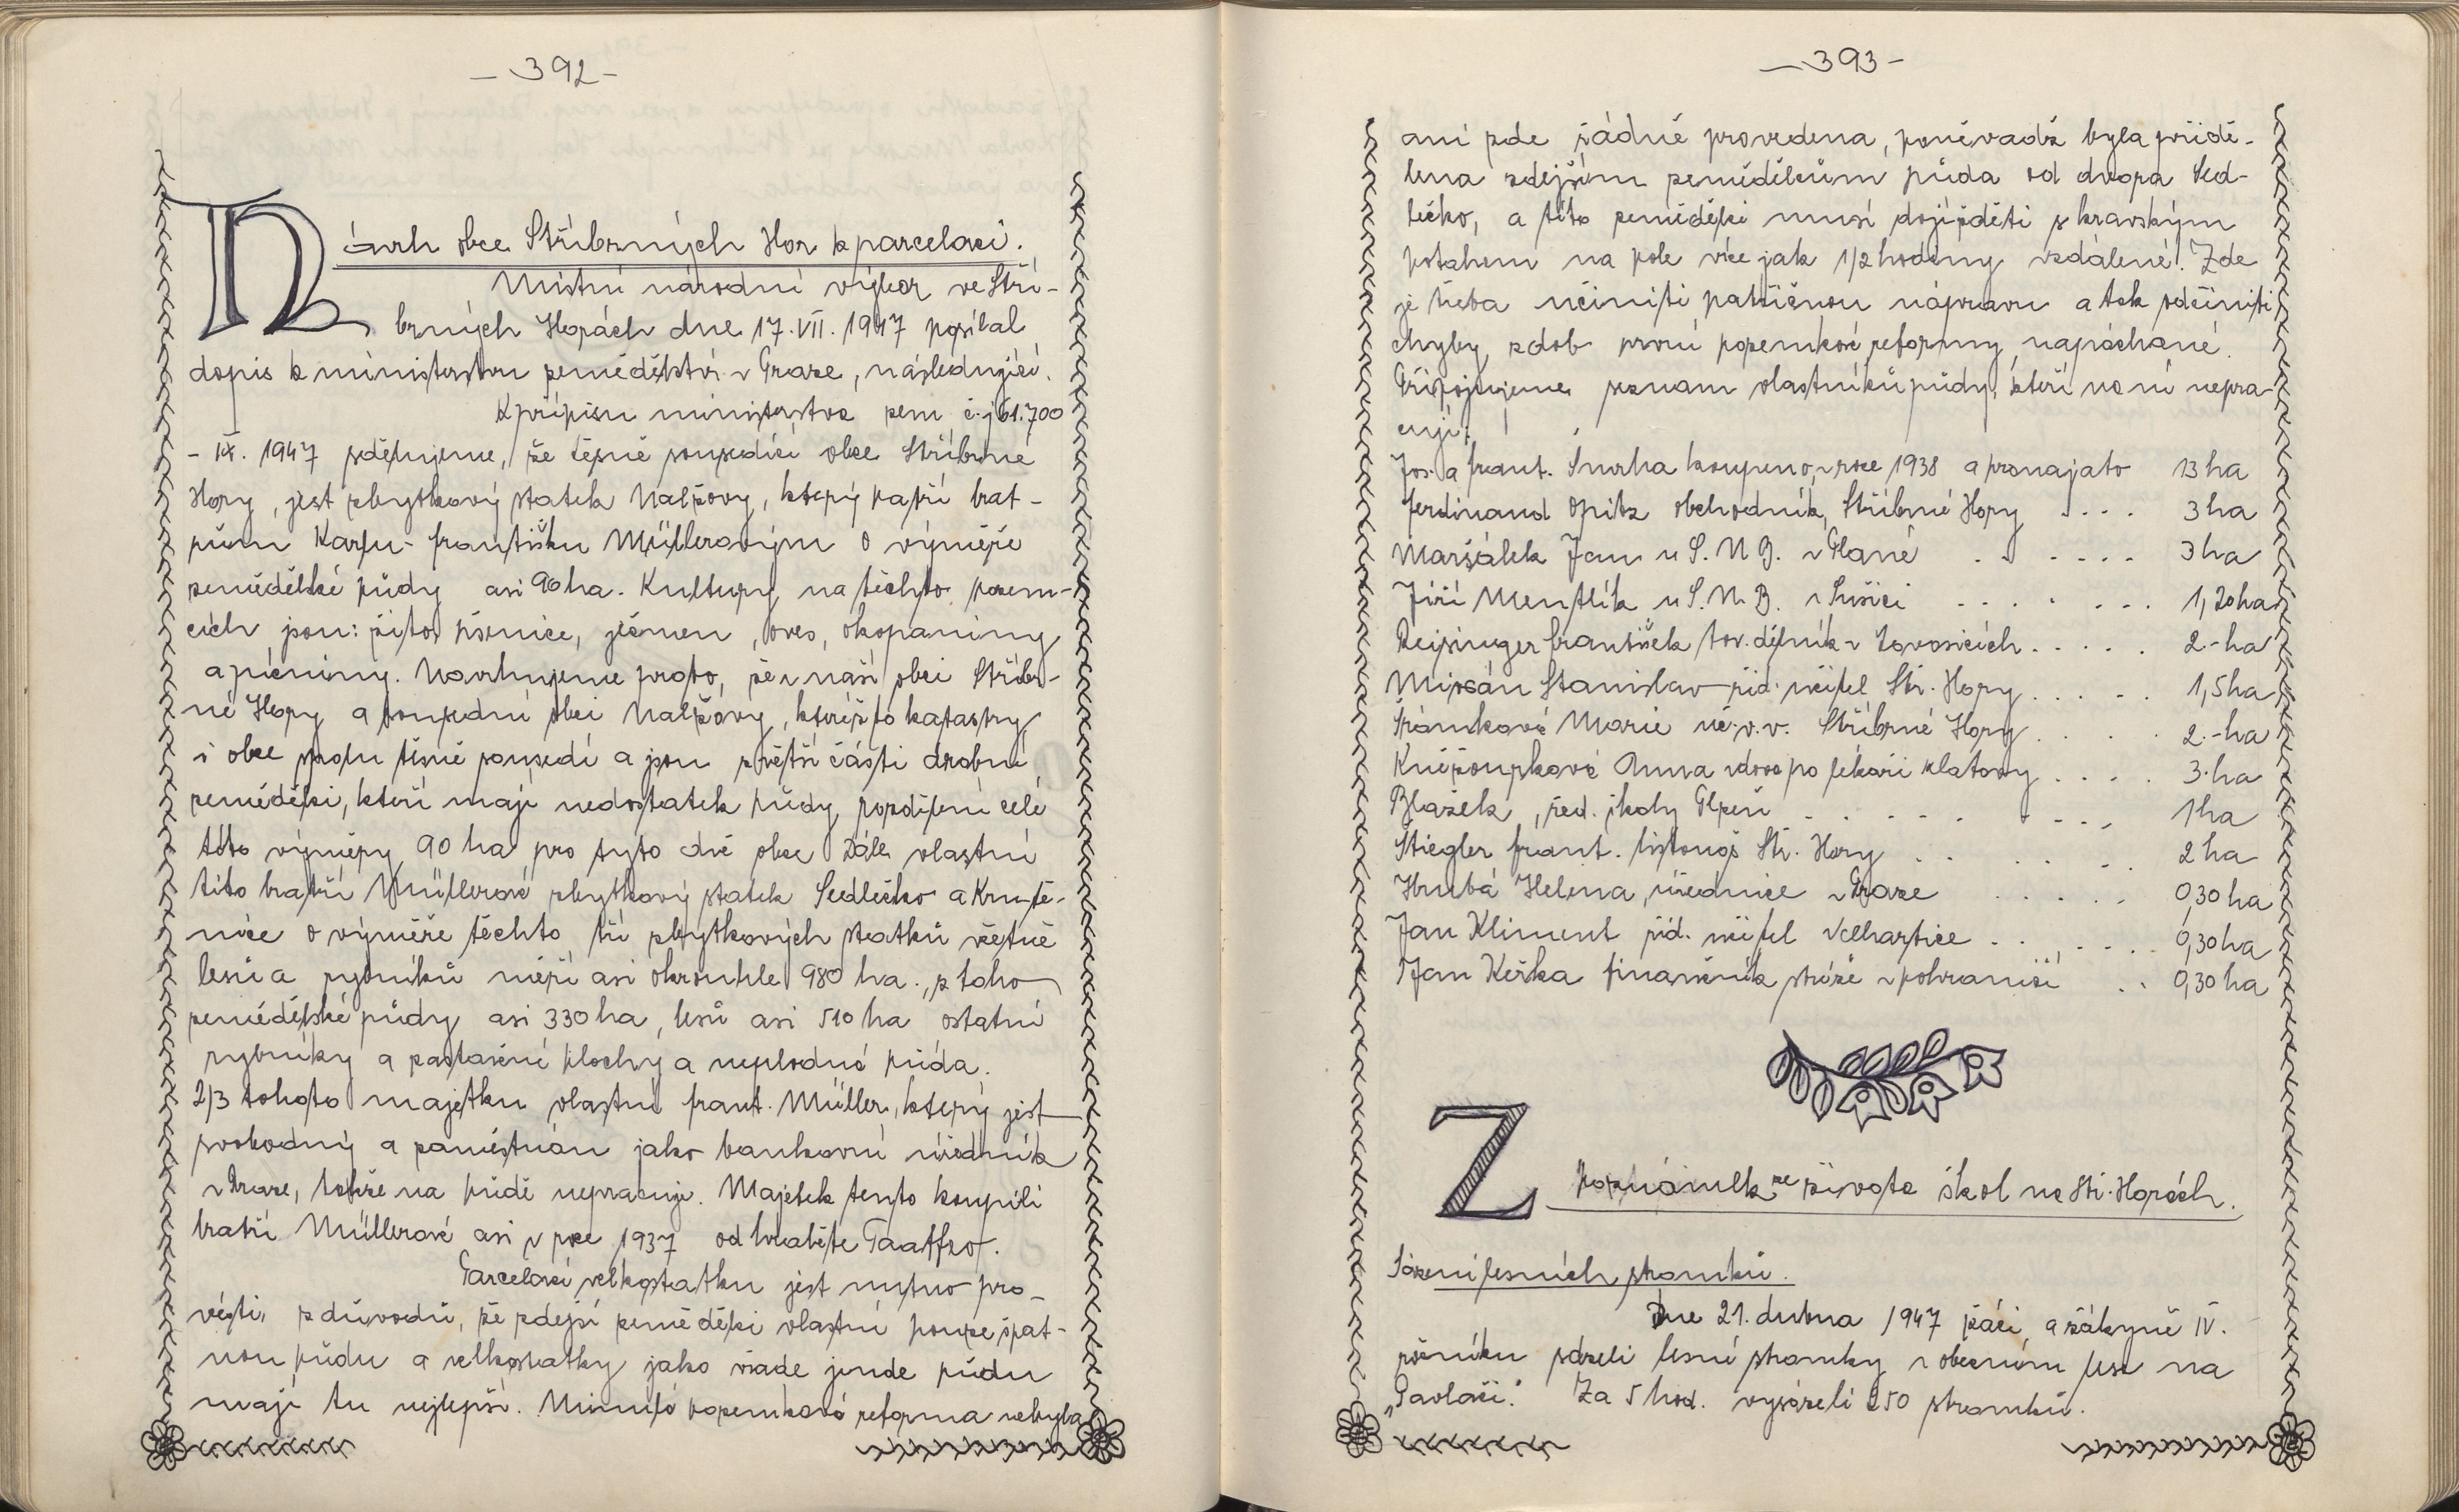 - 392 -
Návrh obce Stříbrných Hor k parcelaci.
Místní národní výbor ve Stří-
brných Horách dne 17. VII. 1947 posílal
dopis k ministerstvu zemědělství v Praze, následující.
K přípisu ministerstva zem. č. j 61.700
- IX. 1947 sdělujeme, že těsně sousedící obce Stříbrné
Hory, jest zbytkový statek Nalžovy, který patří brat-
řům Karlu - Františku Müllerovým o výměře
zemědělské půdy asi 90 ha. Kultury na těchto pozem-
cích jsou: žito, pšenice, ječmen, oves, okopaniny
a pícniny. Navrhujeme proto, že v naší obci Stříbr-
né Hory a sousední obci Nalžovy, kterýžto katastry
i obce spolu těsně sousedí a jsou z větší části drobní
zemědělci, kteří mají nedostatek půdy, rozdělení celé
této výměry 90 ha pro tyto dvě obce. Dále vlastní
tito bratří Müllerové zbytkový statek Sedlečko a Krutě-
nice o výměře těchto tří zbytkových statků včetně
lesů a rybníků měří asi okrouhle 980 ha., z toho
zemědělské půdy asi 330 ha, lesů asi 510 ha ostatní
rybníky a zastavěné plochy a neplodná půda.
2/3 tohoto majetku vlastní frant. Müller, který jest
svobodný a zaměstnán jako bankovní úředník
v Praze, takže na půdě nepracuje. Majetek tento koupili
bratří Müllerové asi v roce 1937 od hraběte Taaffeo.
Parcelaci velkostatku jest nutno pro-
vésti, z důvodů, že zdejší zemědělci vlastní pouze špat-
nou půdu a velkostatky jako všade jinde půdu
mají tu nejlepší. Minulá pozemková reforma nebyla
- 393 -
ani zde řádně provedena, poněvadž byla přidě-
lena zdejším zemědělcům půda od dvora Sed-
lečko, a tito zemědělci musí dojížděti s kravským
potahem na pole více jak 1/2 hodiny vzdálené. Zde
je třeba učiniti patřičnou nápravu a tak odčiniti
chyby z dob první pozemkové reformy napáchané.
Připojujeme seznam vlastníků půdy, kteří na ní nepra-
cují:
Jos. a frant. Smrha koupeno v roce 1938 a pronajato 13 ha
Ferdinand Opitz obchodník, Stříbrné Hory . . . . 3 ha
Maršálek Jan u S. N B. v Plané . . . . . . 3 ha
Jiří Mentlík u S. N. B. v Sušici . . . . . . . 1,20 ha
Reisinger František tov. dělník v Lovosicích . . . . . 2.- ha
Stanislav říd. učitel Stř. Hory . . . . . 1,5 ha
Šrámková Marie uč. v. v. Stříbrné Hory . . . . 2.- ha
Kněžoupková Anna vdova po lékaři Klatovy . . . . 3. ha
Blažek, řed. školy Plzeň . . . . . . . . 1 ha
Stiegler frant. listonoš Stř. Hory . . . . . 2 ha
Hrubá Helena, úřednice v Praze . . . . . 0,30 ha
Jan Kliment říd. učitel Velhartice . . . . . . 0,30 ha
Jan Keřka finančník stráže v pohraničí . . 0,30 ha
Z poznámek ze života škol na Stř. Horách.
Sázení lesních stromků.
Dne 21. dubna 1947 žáci a žákyně IV.
ročníku sázeli lesní stromky v obecním lese na
„Pavlači." Za 5 hod. vysázeli 250 stromků.